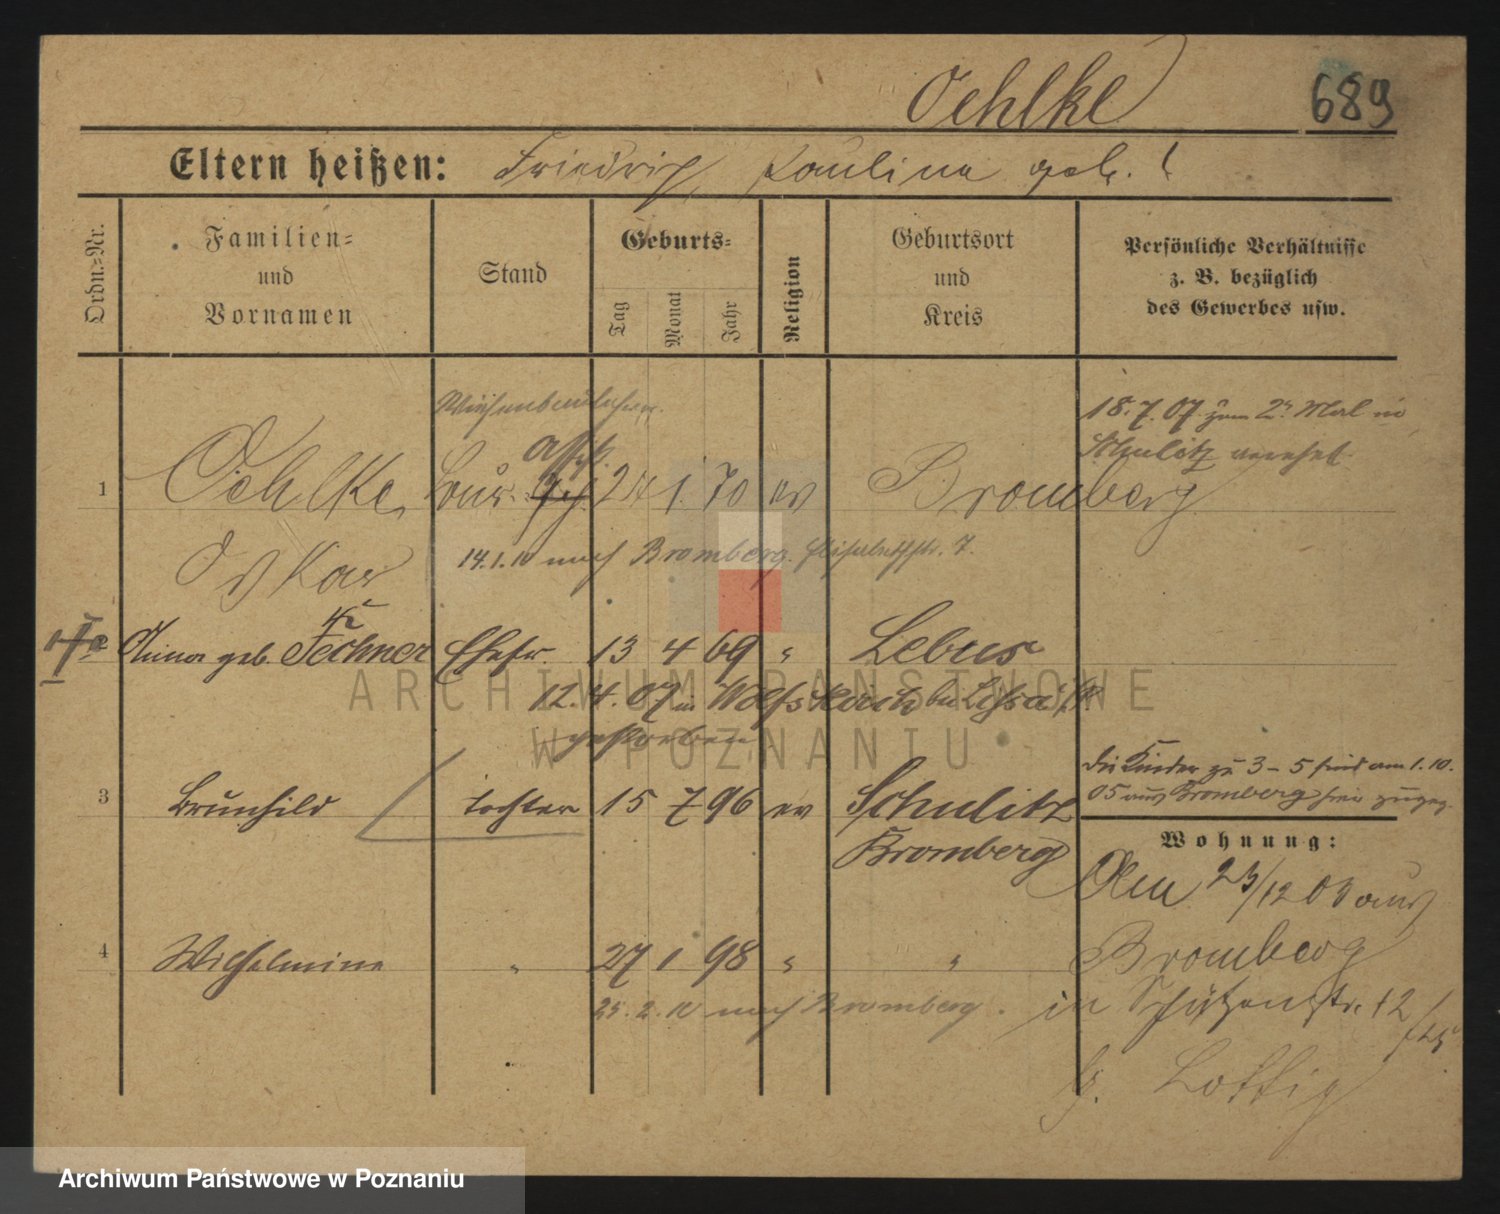 Oehlke
689
Eltern heißen: Friedrich, Paulina geb.
Ordn.-Nr.
Familien-
und
Vornamen
Stand
Geburts-
Tag
Monat
Jahr
Religion
Geburtsort
und
Kreis
Persönliche Verhältnisse
z. B. bezüglich
des Gewerbes usw.
18.7.07 zum 2n Mal in
Schulitz verehel.
Wiesenbautechn.
1 Oehlke, 24 1. 70 ev Bromberg
Oskar
14.1.10 nach Bromberg. Elisabethstr. 7.
Anna geb. Fechner Ehefr. 13 4 69 " Lebus
12.4.07 in Wolfskirch bei Lissa i/P.
gestorben
3 Brunhild tochter 15 7 96 ev Schulitz
Bromberg
die Kinder zu 3-5 sind am 1.10.
05 aus Bromberg hier zugez.
Wohnung:
Am 23/12 03 aus
Bromberg
in Schützenstr. 12
b. Lottig
4 Wilhelmine " 27 1 98 " "
25.2.10 nach Bromberg.
ARCHIWUM PAŃSTWOWE
W POZNANIU
Archiwum Państwowe w Poznaniu